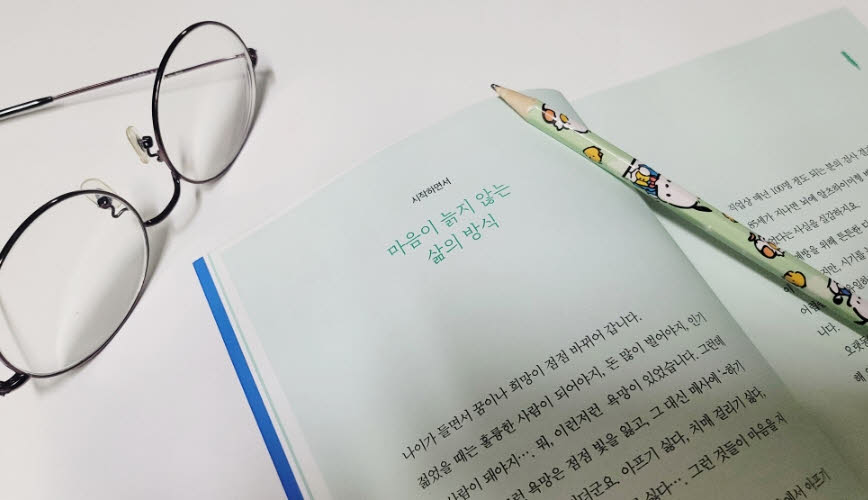 시작하면서
마음이 늙지 않는
삶의 방식
나이가 들면서 꿈이나 희망이 점점 바뀌어 갑니다.
젊었을 때는 훌륭한 사람이 되어야지, 돈 많이 벌어야지, 인기
사람이 돼야지…. 뭐, 이런저런 욕망이 있었습니다. 그런데
욕망은 점점 빛을 잃고, 그 대신 매사에 '~하기
아프기 싫다, 치매 걸리기 싫다,
싫다…. 그런 것들이 마음을 지
아프기
직업상 매년 100명 정도 되는 분의
85세가 지나면 뇌에 알츠하이머형
다는 사실을 실감하지요
예방을 위해 튼튼한
지만, 시기를
니다.